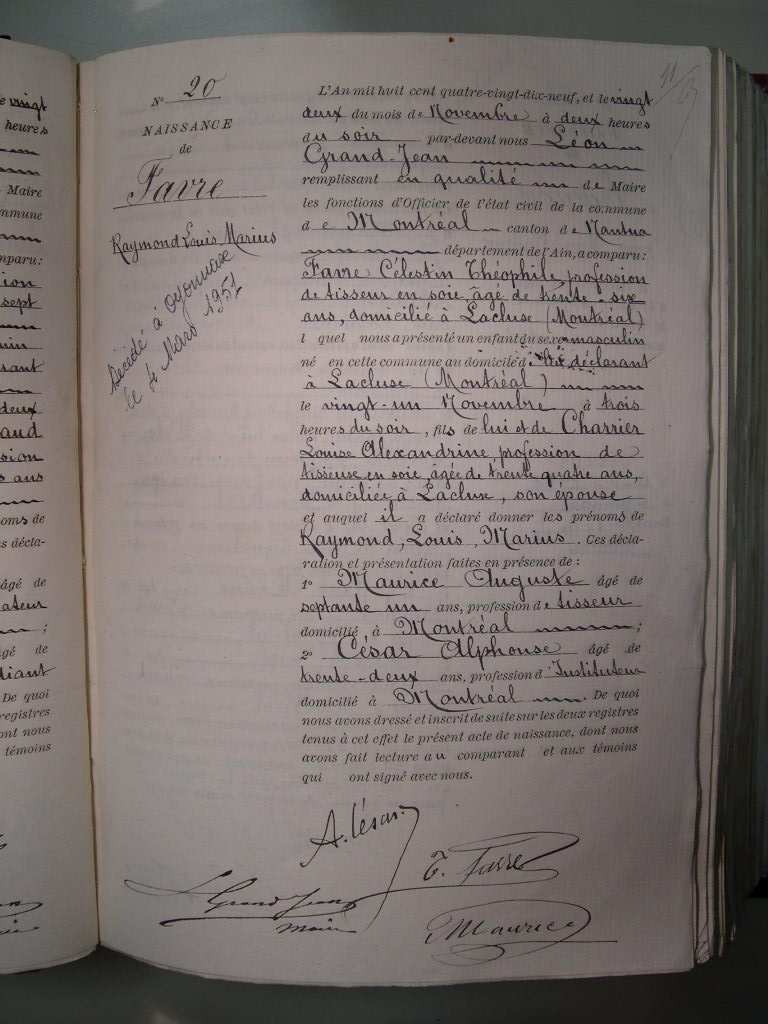 11/23
N° 20
NAISSANCE
de
Favre
Raymond Louis Marius
Décédé à Oyonnax
le 4 Mars 1957
L'An mil huit cent quatre-vingt-dix-neuf, et le vingt
deux du mois de Novembre à deux heures
du soir par-devant nous Léon
Grand-Jean
remplissant en qualité de Maire
les fonctions d'Officier de l'état civil de la commune
de Montréal canton de Nantua
département de l'Ain, a comparu:
Favre Célestin Théophile, profession
de tisseur en soie, âgé de trente-six
ans, domicilié à Lacluse (Montréal)
l quel nous a présenté un enfant du sexe masculin
né en cette commune au domicile d déclarant
à Lacluse (Montréal)
le vingt-un Novembre à trois
heures du soir, fils de lui et de Charrier
Louise Alexandrine, profession de
tisseuse en soie, âgée de trente quatre ans,
domiciliée à Lacluse, son épouse
et auquel il a déclaré donner les prénoms de
Raymond, Louis, Marius. Ces décla-
ration et présentation faites en présence de :
1° Maurice Auguste âgé de
septante un ans, profession de tisseur
domicilié à Montréal ;
2° César Alphonse âgé de
trente-deux ans, profession d'Instituteur
domicilié à Montréal . De quoi
nous avons dressé et inscrit de suite sur les deux registres
tenus à cet effet le présent acte de naissance, dont nous
avons fait lecture au comparant et aux témoins
qui ont signé avec nous.
A. César
T. Favre
L. Grand Jean
maire
Maurice
e vingt
heures
Maire
commune
omparu:
sion
sept
rant
deux
aud
sion
s ans
noms de
s décla-
âgé de
ateur
;
gé de
diant
De quoi
registres
ont nous
témoins